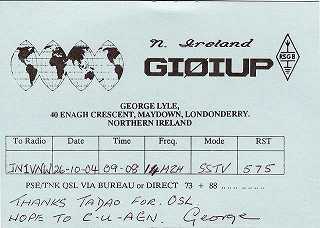 N. Ireland
GIØIUP
RSGB
GEORGE LYLE,
40 ENAGH CRESCENT, MAYDOWN, LONDONDERRY.
NORTHERN IRELAND
To Radio Date Time Freq. Mode RST
JN1VNW 26-10-04 09-08 14MZH SSTV 575
PSE/TNK QSL VIA BUREAU or DIRECT 73 + 88 .................
THANKS TADAO FOR. QSL
HOPE TO C-U-AGN. George